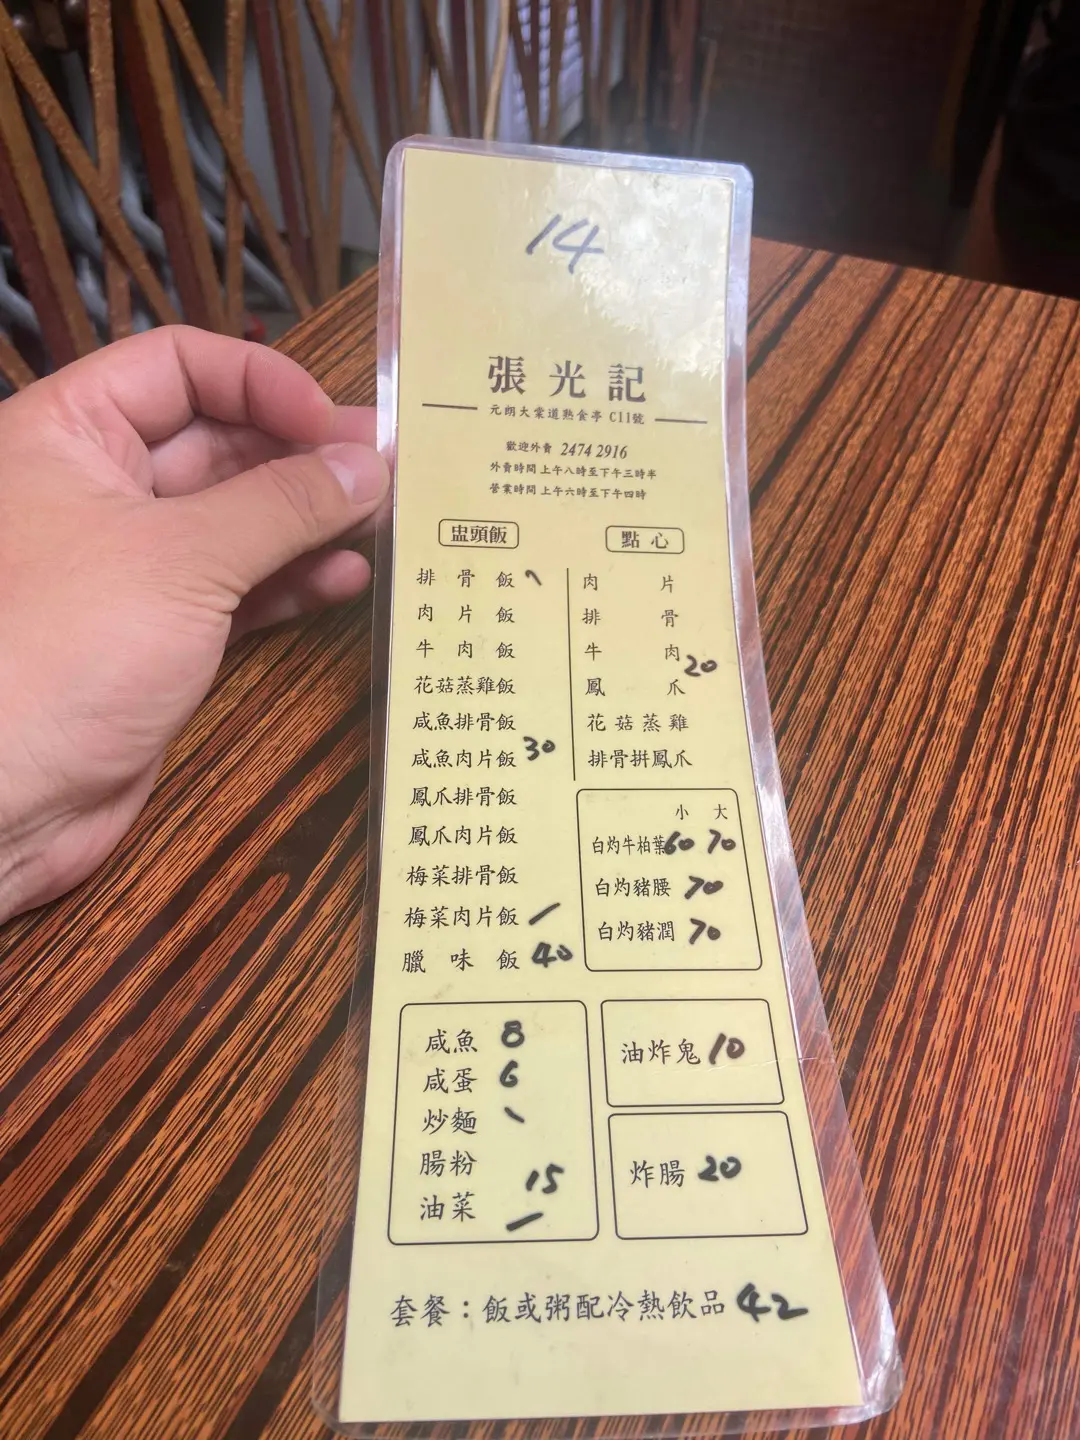 14
張光記
元朗大棠道熟食亭 C11號
歡迎外賣 2474 2916
外賣時間 上午八時至下午三時半
營業時間 上午六時至下午四時
盅頭飯
排骨飯
肉片飯
牛肉飯
花菇蒸雞飯
咸魚排骨飯
咸魚肉片飯 30
鳳爪排骨飯
鳳爪肉片飯
梅菜排骨飯
梅菜肉片飯
臘味飯 40
點心
肉片
排骨
牛肉 20
鳳爪
花菇蒸雞
排骨拼鳳爪
小 大
白灼牛柏葉 60 70
白灼豬腰 70
白灼豬潤 70
咸魚 8
咸蛋 6
炒麵
腸粉 15
油菜
油炸鬼 10
炸腸 20
套餐：飯或粥配冷熱飲品 42